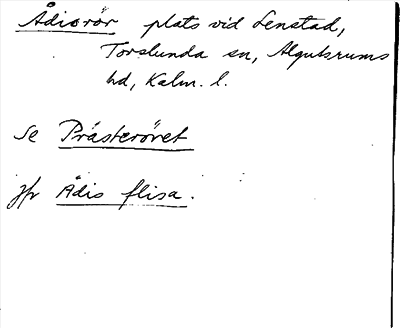 Ådisrör plats vid Lenstad,
Torslunda sn, Algutsrums
hd, Kalm. l.
se Prästeröret
jfr Ådis flisa.